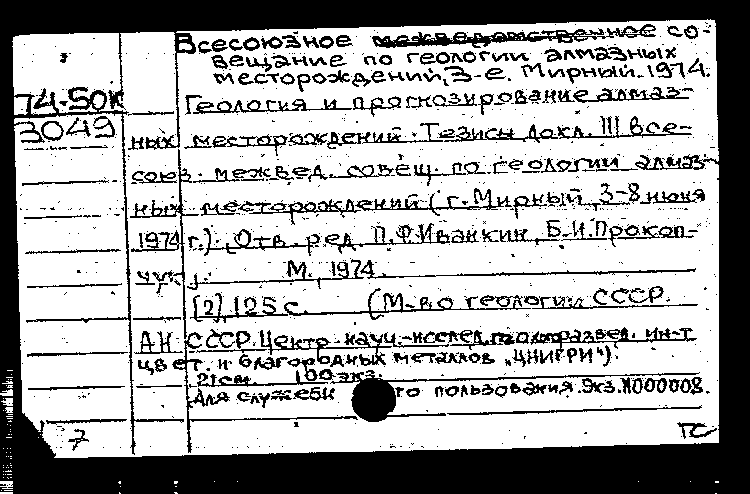 Всесоюзное межведомственное со-
вещание по геологии алмазных
месторождений, 3-е. Мирный. 1974.
74-50к
3049
Геология и прогнозирование алмаз-
ных месторождений. Тезисы докл. III Все-
союз. межвед. совещ. по геологии алмаз-
ных месторождений (г. Мирный, 3-8 июня
1974 г.). Отв. ред. П.Ф. Иванкин, Б.И. Прокоп-
чук.
М., 1974.
[2], 125 с. (М-во геологии СССР.
АН СССР. Центр. науч.-исслед. геологоразвед. ин-т
цвет. и благородных металлов „ЦНИГРИ").
21 см. 100 экз.
Для служебн го пользования. Экз. N000008.
7
ГС